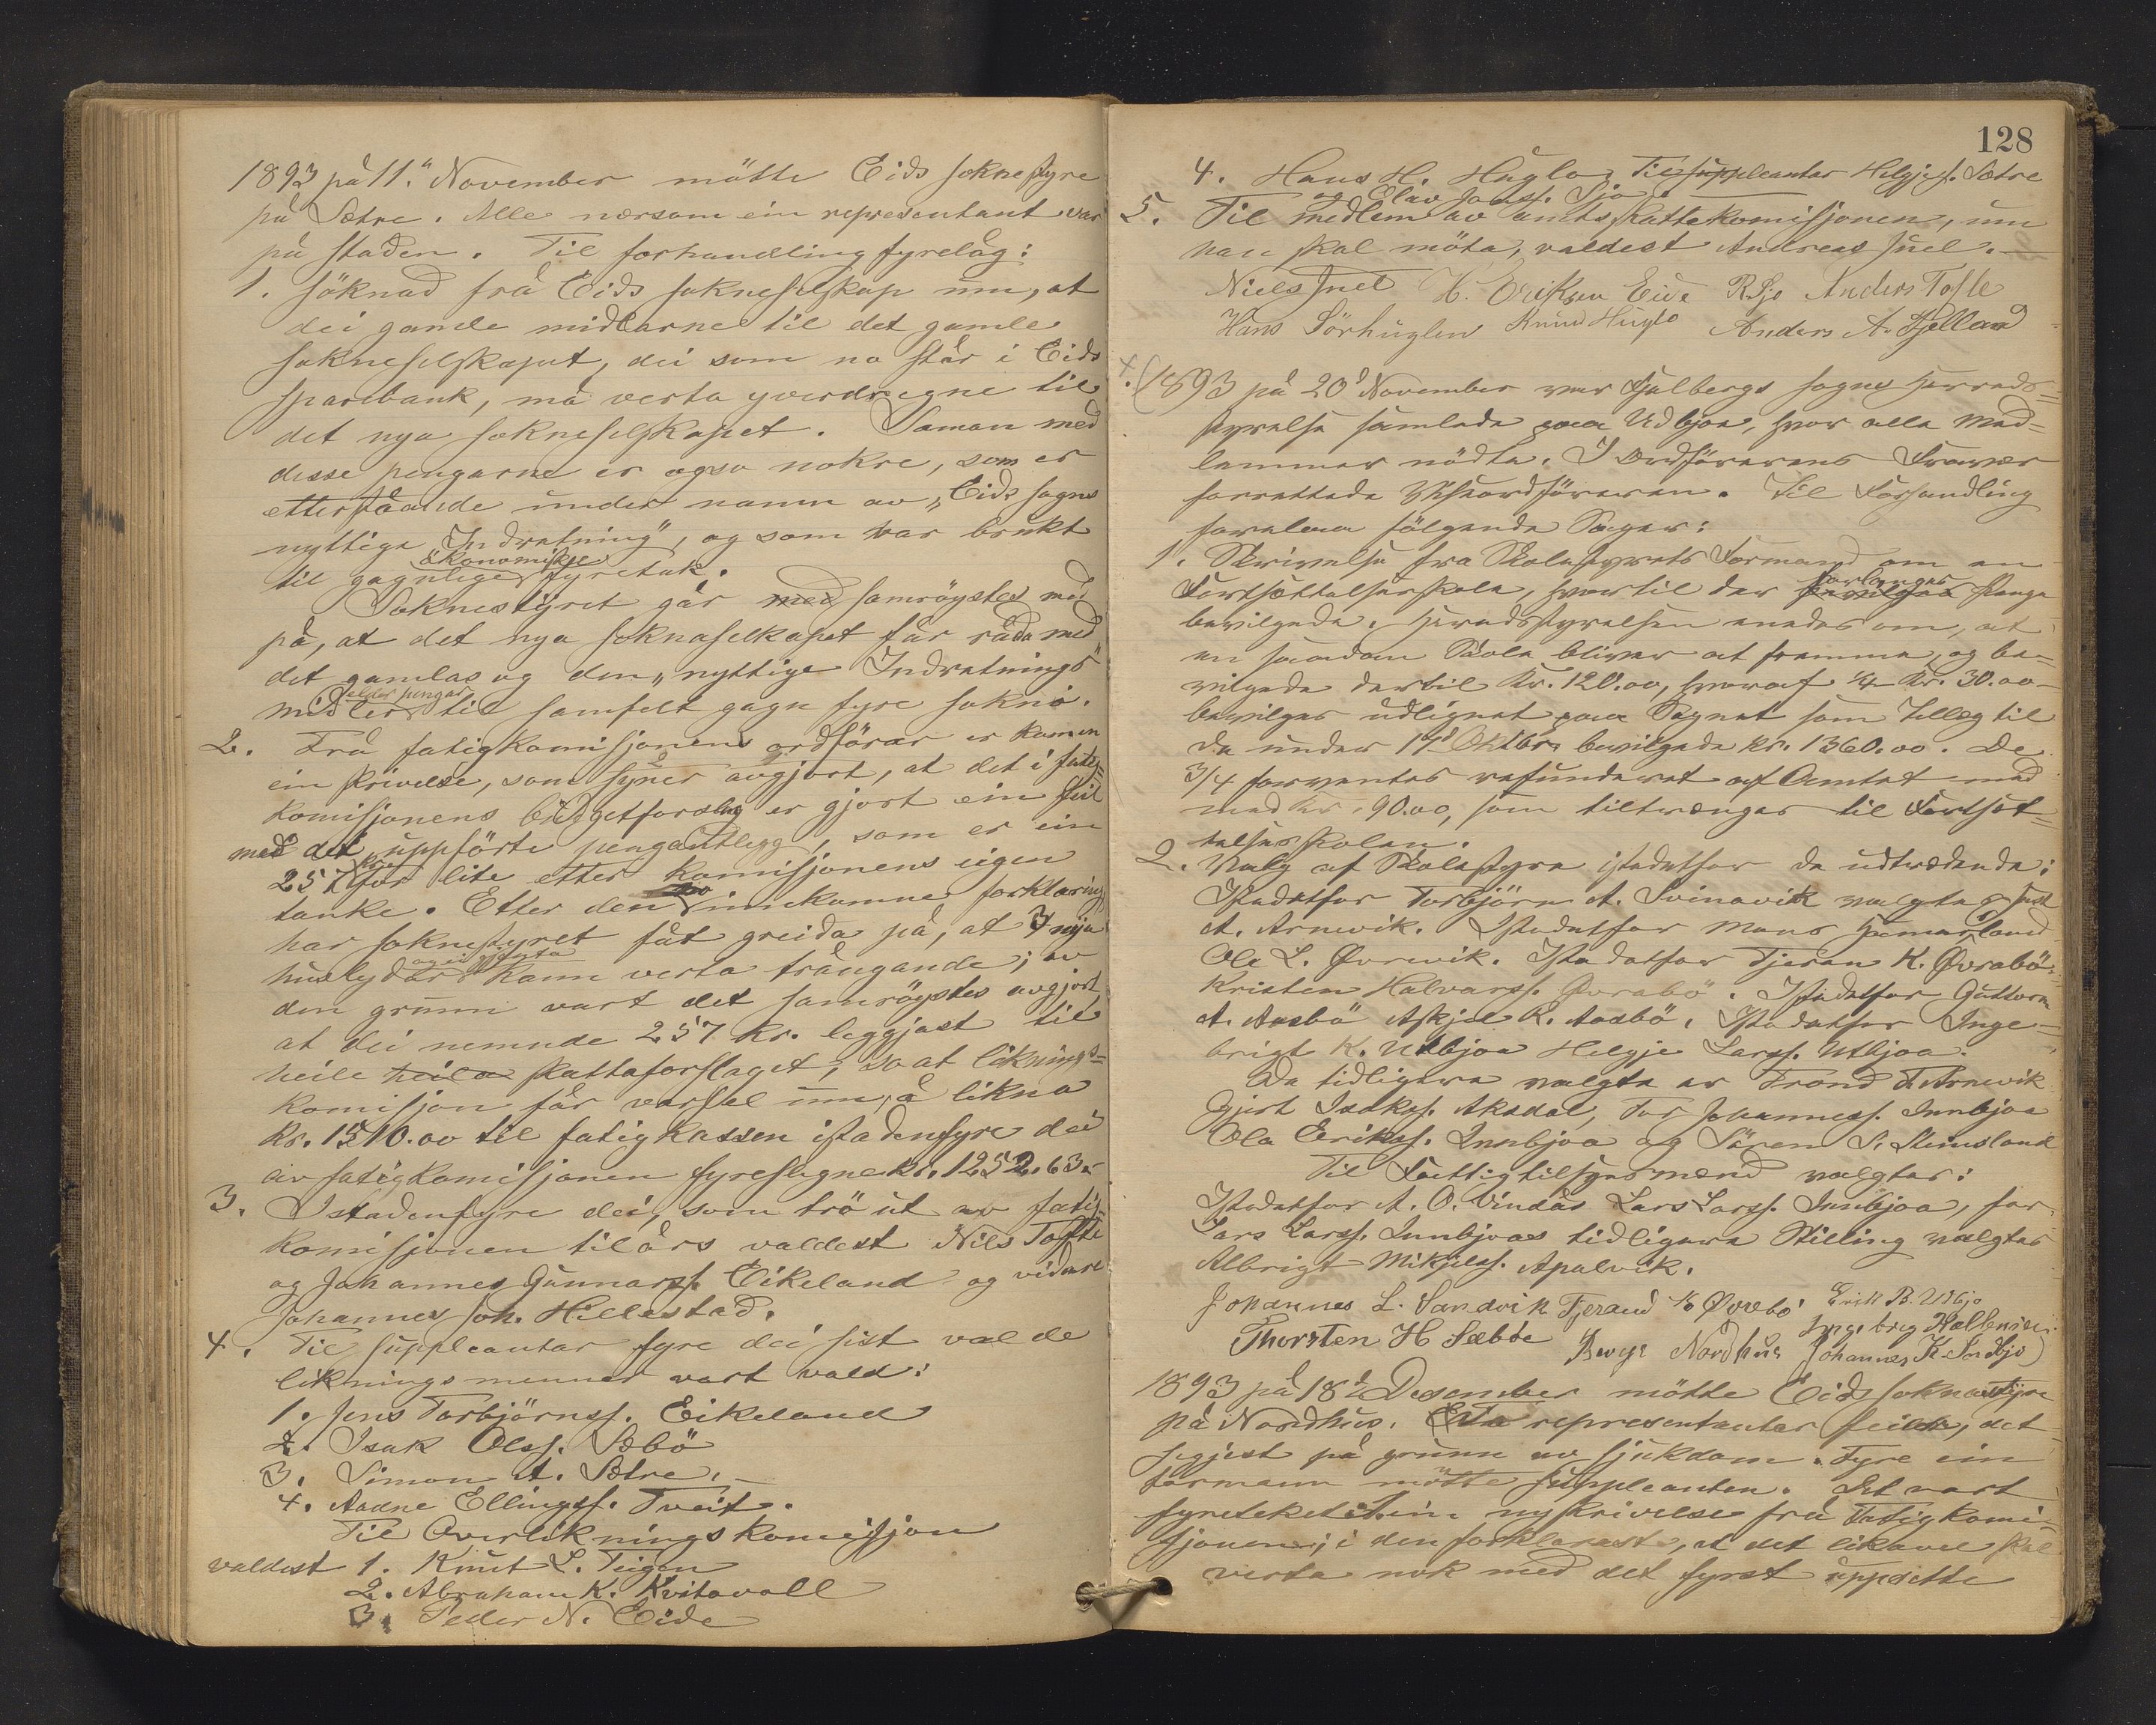 1893 på 11.te November mötte Eids soknestyre
på Sætre. Alle nærsom ein representant var
på staden. Til forhandling fyrelåg:
1. Söknad frå Eids sokneselskap um, at
dei gamle midlarne til det gamle
sokneselskapet, dei som no står i Eids
sparebank, må verta yverdregne til
det nya sokneselskapet. Saman med
desse pengarne er ogso nokre, som er
etterståande under namn av „Eids sogns
nyttige Indretning", og som har brukt
ökonomiskje
til gagnlige fyretak.
Soknestyret går med samröystes med
på, at det nya soknaselskapet får råda med
det gamlas og den „nyttige Indretnings"
elder pengar
midler til samfelt gagn fyre sokni.
2. Frå fatigkomisjonens ordförar er komen
ein skrivelse, som syner avgjort, at det i fatig-
komisjonens budgetforslag er gjort ein feil
med det uppförte pengautlegg, som er ein
257 kr. for lite etter komisjonens eigen
tanke. Etter den innkomne forklaring
har soknestyret fåt greida på, at 3 nya
huslydar kann verta trångande; av
den grunn vart det samröystes avgjort
at dei nemnde 257 kr. leggjast til
heile heila skattaforslaget; so at liknings-
komisjon får varsel um, å likna
kr. 1510.00 til fatigkassen istadenfyre dei
av fatigkomisjonen fyreslegne kr. 1252.63.
3. Istadenfyre dei, som trö ut av fatig-
komisjonen til års valdest Nils Tofte
og Johannes Gunnarss. Eikeland og vidare
Johannes Joh. Hillestad.
4. Til suppleantar fyre dei sist valde
likningsmenner vart vald:
1. Jens Torbjörnss. Eikeland
2. Isak Olss. Sebö
3. Simon A. Sætre.
4. Aadne Ellingss. Tveit.
Til Overlikningskomisjon
valdest 1. Knut L. Teigen
2. Abraham K. Kvitavoll
3. Peder N. Eide
128
4. Hans H. Huglo. Til suppleantar Helgje J. Sætre
og Elav Janss. Sjo
5. Til medlem av amtsskattekomisjonen, um
han skal möta, valdest Andreas Juel.
Niels Juel H. Eriksen Eide R. Sjo Anders Tofte
Hans Sörhuglen Knud Huglo Anders A. Fjelland
1893 på 20de November var Fjelbergs sogns Herreds-
styrelse samlede paa Udbjoa, hvor alle Med-
lemmer mödte. I Ordförerens Fravær
forrettede Viseordföreren. Til Forhandling
forelaa fölgende Sager:
1. Skrivelse fra Skolestyrets Formand om en
Fortsættelsesskole, hvortil der forlanges Penge
bevilgede. Herredsstyrelsen enedes om, at
en saadan Skole bliver at fremme, og be-
vilgede dertil Kr. 120.00, hvoraf 1/4 Kr. 30.00
bevilges udlignet paa Sognet som Tillæg til
de under 17de Oktbr. bevilgede Kr. 1360.00. De
3/4 forventes refunderet af Amtet med
med kr. 90.00, som tiltrænges til Fortsæt-
telsesskolen.
2. Valg af Skolestyre istedetfor de udtrædende:
Istedetfor Torbjörn A. Svinavik valgtes
A. Arnevik. Istedetfor Mons Hamarsland
Ole L. Øvrevik. Istedetfor Tjeran K. Øvrabö
Kristen Halvarss. Øvrabö. Istedetfor Guttorm
A. Aasbö Askjel K. Aasbö. Istedetfor Inge-
brigt K. Utbjoa Helgje Larss. Utbjoa.
De tidligere valgte er Trond T. Arnevik
Gjert Isakss. Aksdal, Tor Johanness. Innbjoa
Ola Erikss. Innbjoa og Sören S. Steinsland
Til Fattigtilsynsmænd valgtes:
Istedetfor A. O. Vindas Lars Larss. Innbjoa, for
Lars Larss. Innbjoas tidligere Stilling valgtes
Albrigt Mikjelss. Apalvik.
Johannes L. Sandvik Tjerand K. Øvrebö Erik B. Udbjo
Thorsten H Sæböe Børge Nordhus Ingebrig
Johannes K.
1893 på 18de Desember mötte Eids soknastyre
på Nordhus. representantar feilte, det
segjest på grunn av sjukdom. Fyre ein
formann mötte suppleanten. Det vart
fyreteket ein ny skrivelse frå Fatigkomi-
sjonen; i den forklarast, at det likavel skal
verta nok med det fyrst uppsette